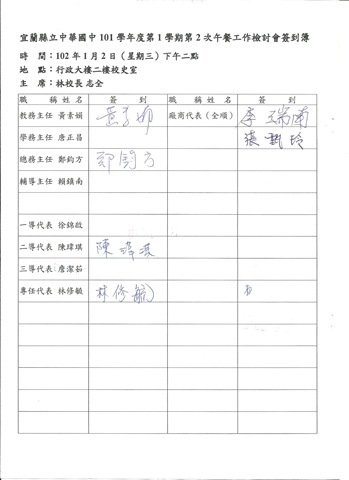 宜蘭縣立中華國中 101 學年度第 1 學期第 2 次午餐工作檢討會簽到簿
時 間：102 年 1 月 2 日（星期三）下午二點
地 點：行政大樓二樓校史室
主 席：林校長 志全
職 稱 姓 名 簽 到 職 稱 姓 名 簽 到
教務主任 黃素娟 廠商代表（全順） 李瑞南
學務主任 唐正昌 張 玲
總務主任 鄭鈞方 鄭鈞方
輔導主任 賴鎮南
一導代表 徐錦啟
二導代表 陳瑋琪 陳瑋琪
三導代表 詹潔茹
專任代表 林修毓 林修毓